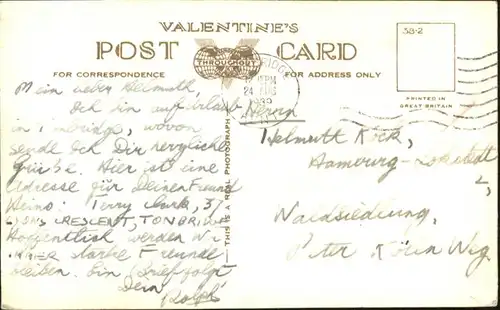 VALENTINE'S
POST CARD
THROUGHOUT
THE WORLD
FOR CORRESPONDENCE
FOR ADDRESS ONLY
38-2
PRINTED IN
GREAT BRITAIN
THIS IS A REAL PHOTOGRAPH
24 AUG
Mein lieber Helmuth,
Ich bin auf Urlaub
in Tonbridge, wovon
sende ich Dir herzliche
Grüße. Hier ist eine
Adresse für Deinen Freund
Heino: Terry Clark, 37
LYONS CRESCENT, TONBRIDGE
Hoffentlich werden Wir
IMMER starke Freunde
bleiben. Ein Brief folgt
Dein
Rolph
Herrn
Helmuth Köck,
Hamburg-Lokstedt
Waldsiedlung,
Peter Weg